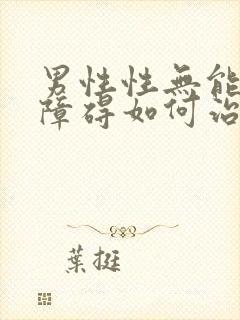 男性性無能
障碍如何治
葉挺